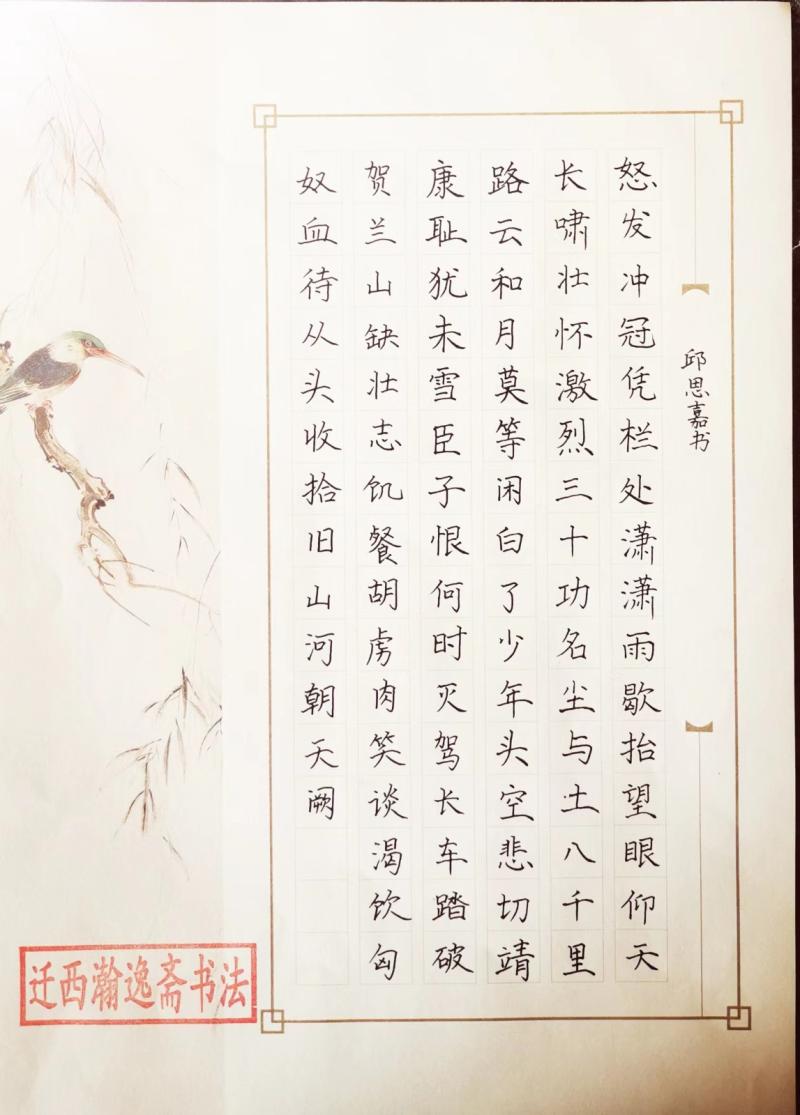 怒发冲冠凭栏处潇潇雨歇抬望眼仰天
长啸壮怀激烈三十功名尘与土八千里
路云和月莫等闲白了少年头空悲切靖
康耻犹未雪臣子恨何时灭驾长车踏破
贺兰山缺壮志饥餐胡虏肉笑谈渴饮匈
奴血待从头收拾旧山河朝天阙
邱思嘉书
迁西瀚逸斋书法